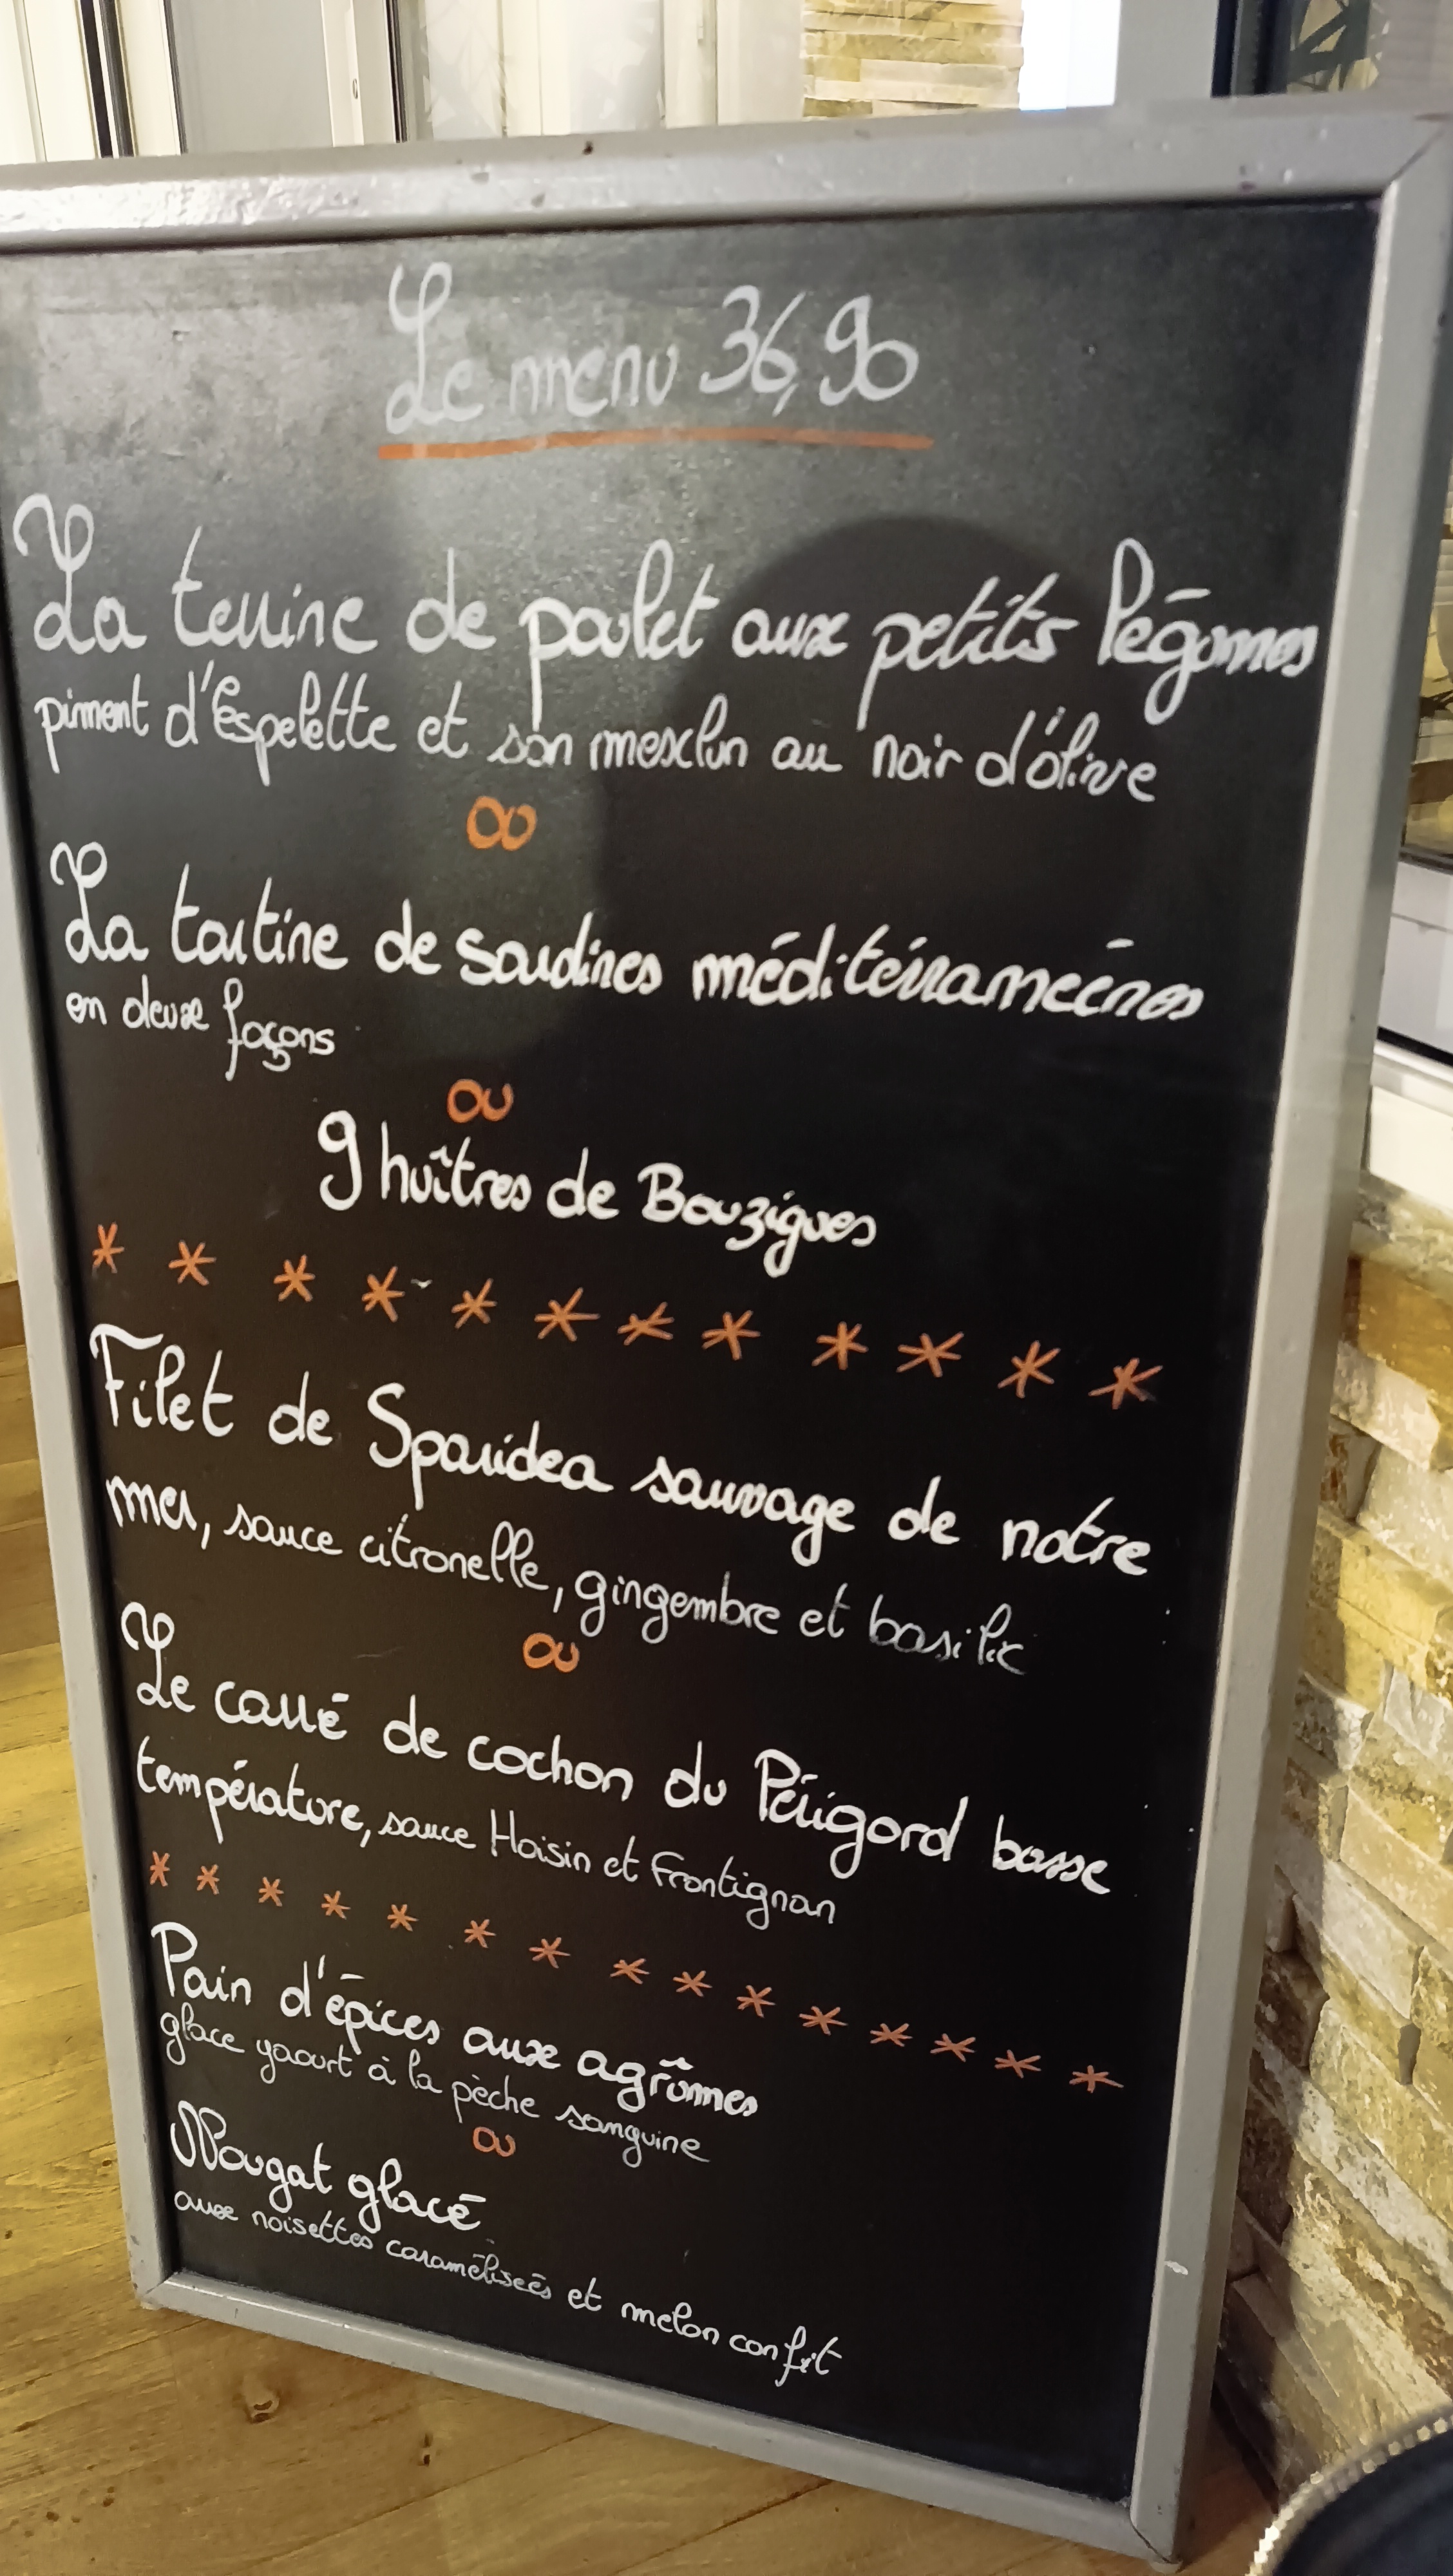 Le menu 36,90
La terrine de poulet aux petits légumes
piment d'Espelette et son mesclun au noir d'olive
ou
La tartine de sardines méditérranéenes
en deux façons
ou
9 huîtres de Bouzigues
* * * * * * * * * * * *
Filet de Sparidea sauvage de notre
mer, sauce citronelle, gingembre et basilic
ou
Le carré de cochon du Périgord basse
température, sauce Hoisin et Frontignan
* * * * * * * * * * * * * * *
Pain d'épices aux agrûmes
glace yaourt à la pèche sanguine
ou
Nougat glacé
aux noisettes caramélisées et melon confit